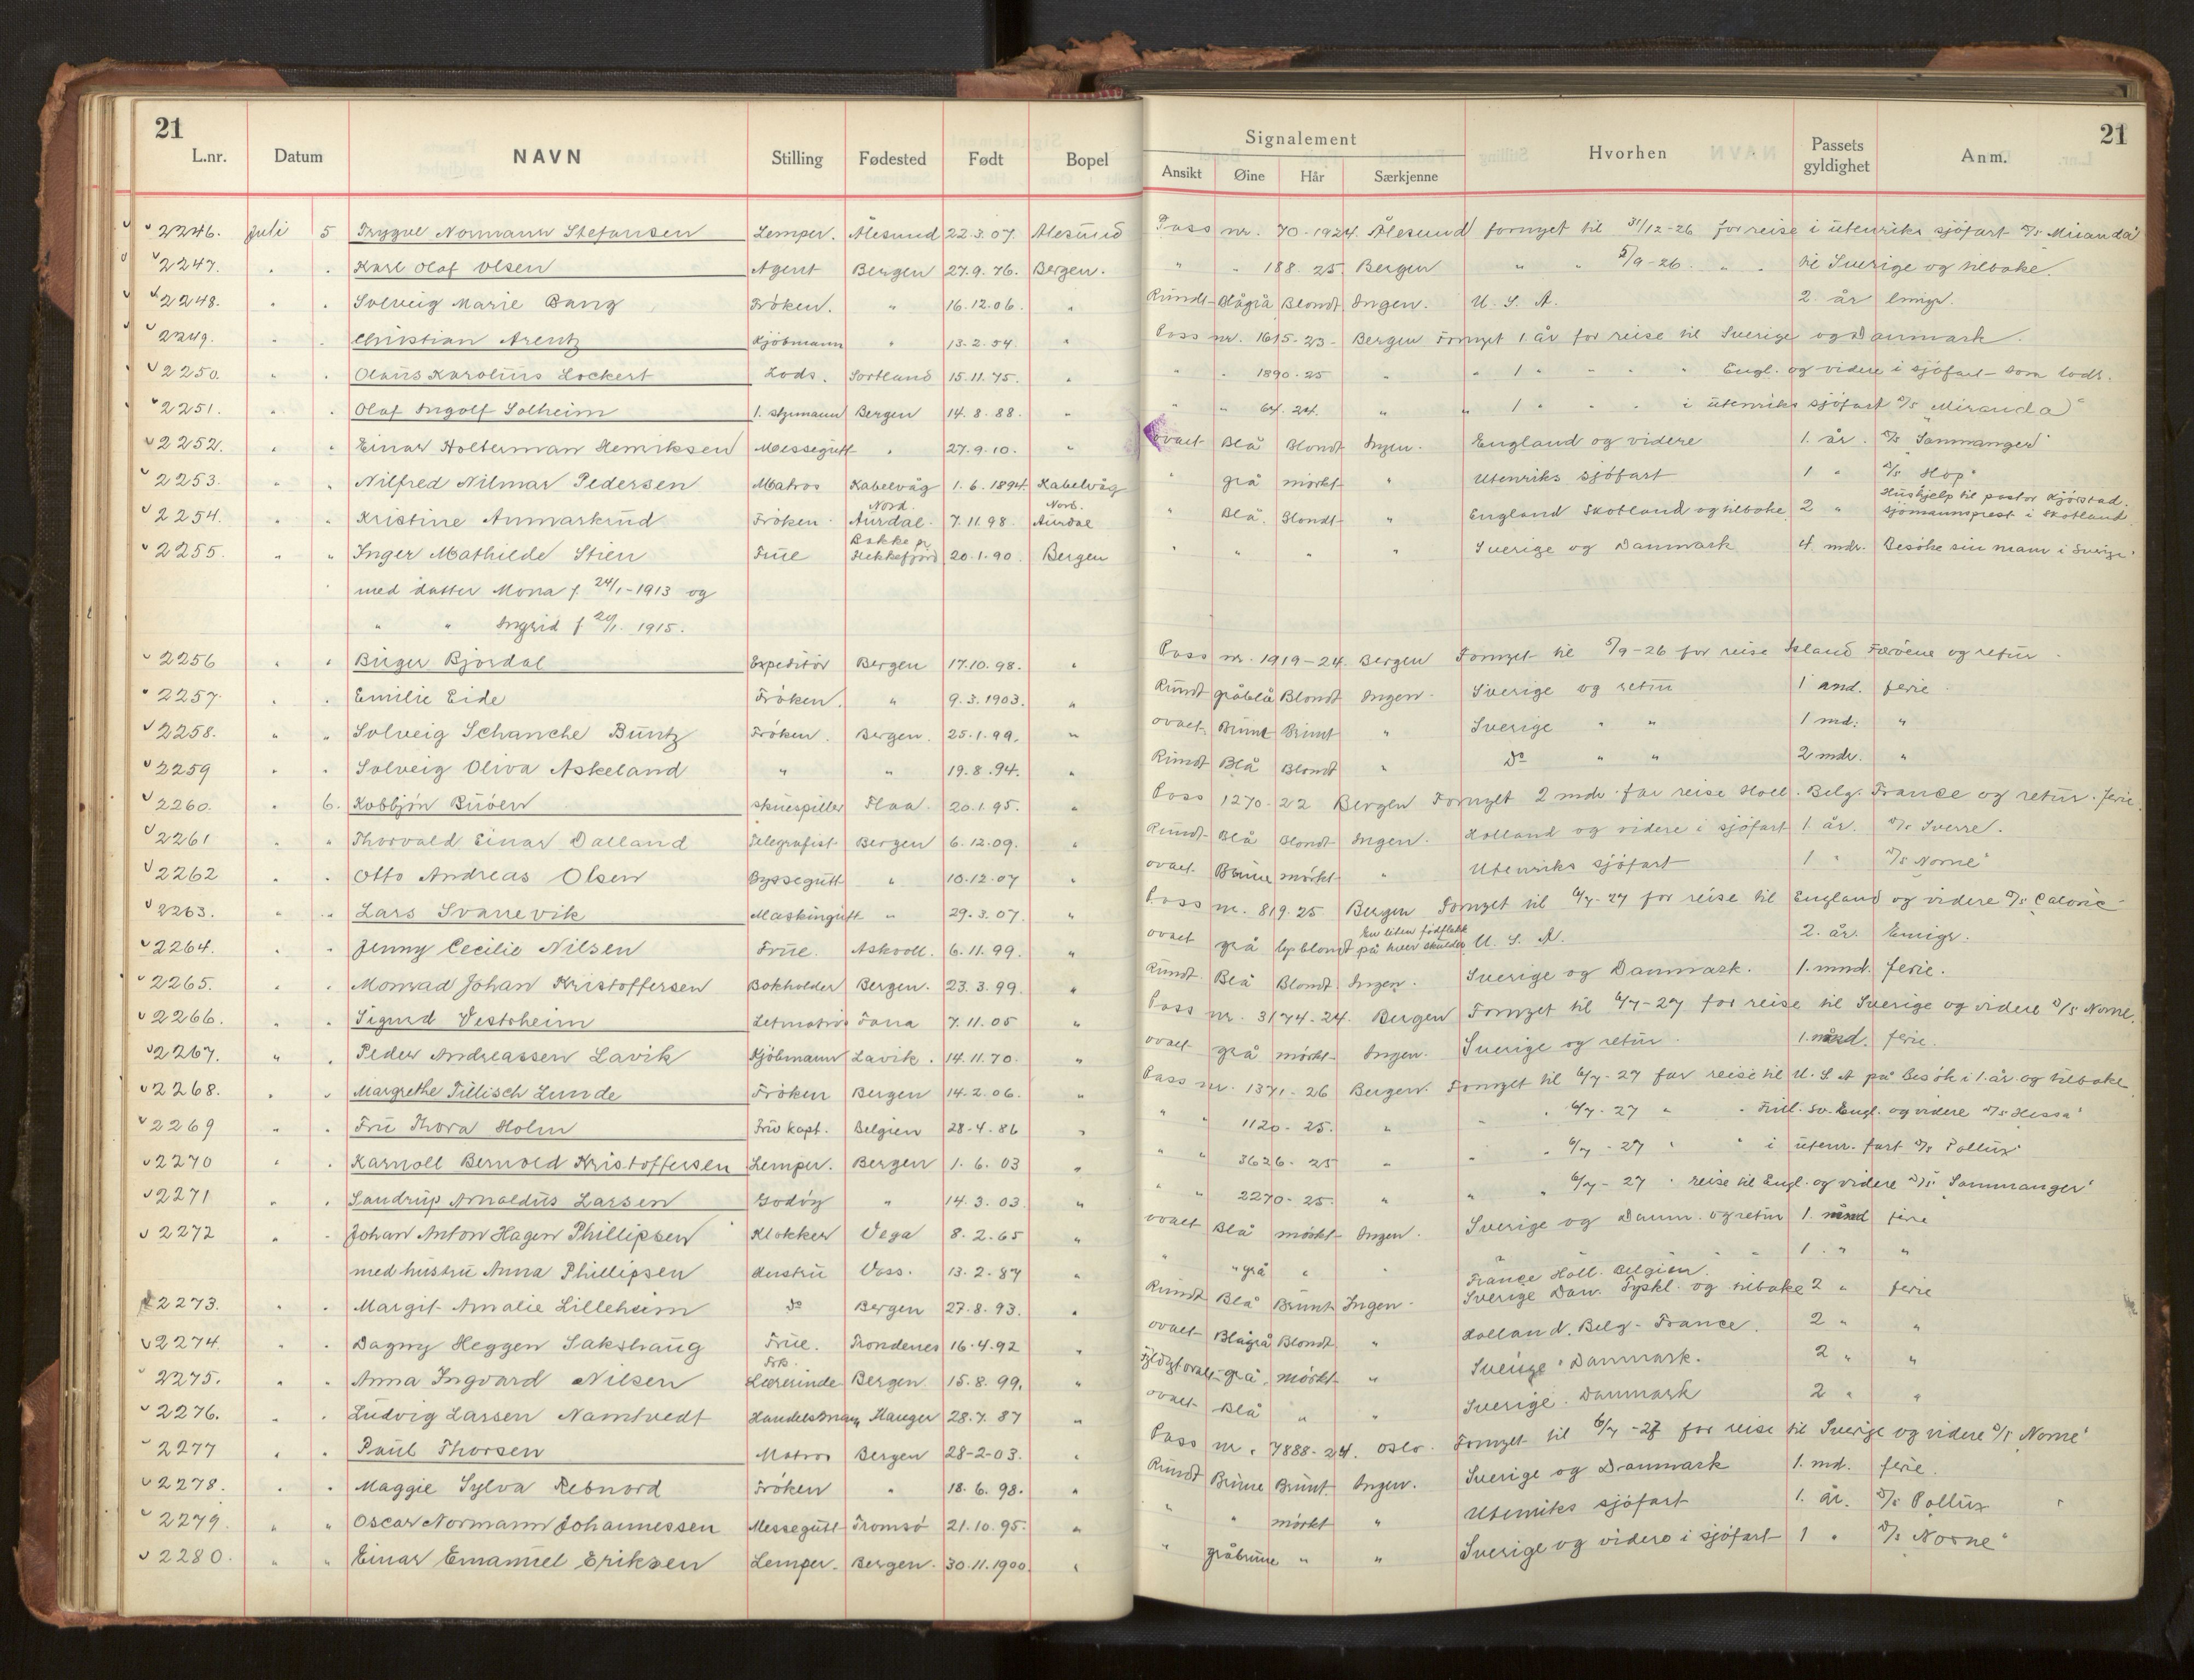 21
L.nr. Datum NAVN Stilling Fødested Født Bopel
Signalement
Ansikt Øine Hår Særkjenne Hvorhen Passets gyldighet Anm. 21
2246. Juli 5 Trygve Normann Stefansen Lemper. Ålesund 22.3.07. Ålesund Pass nr. 70-1924. Ålesund fornyet til 31/12-26 for reise i utenriks sjöfart D/S Miranda"
2247. " " Karl Olaf Olsen Agent Bergen 27.9.76. Bergen. " " 188. 25. Bergen " " 5/9-26. " " til Sverige og tilbake.
2248. " " Solveig Marie Bang Fröken. " 16.12.06. " Rundt Blågrå Blondt Ingen. U. S. A. 2 år Emigr.
2249. " " Christian Arentz Kjöbmann " 13.2.54. " Pass nr. 1615-23- Bergen Fornyet 1 år for reise til Sverige og Danmark.
2250. " " Olaus Karolius Lockert Lods. Sortland 15.11.75. " " " 1890-25 " " 1 " " " " Engl. og videre i sjöfart som lods.
2251. " " Olaf Ingolf Solheim 1. styrmann Bergen 14.8.88. " " " 64. 24. " " 1 " " " i utenriks sjöfart D/S Miranda"
2252. " " Einar Holterman Henriksen Messegutt " 27.9.10. " ovalt Blå Blondt Ingen. England og videre 1. år. D/S "Sammanger"
2253. " " Nilfred Nilmar Pedersen Matros Kabelvåg 1.6.1894. Kabelvåg " grå mörkt " Utenriks sjöfart 1 " D/S "Hop"
2254. " " Kristine Aumarkrud Fröken. Nord. Aurdal. 7.11.98. Nord. Aurdal " Blå. Blondt " England Skotland og tilbake 2 " Hushjelp til pastor Kjörstad. sjömannsprest i Skotland.
2255. " " Inger Mathilde Stien Frue Bakke pr. Flekkefjord 20.1.90. Bergen " " " " Sverige og Danmark 4 mdr. Besöke sin mann i Sverige
med datter Mona f. 24/1-1913 og
" " Ingrid f. 20/1. 1915.
2256 " " Birger Bjordal Expeditör Bergen 17.10.98. " Pass nr. 1919-24. Bergen Fornyet til 5/9-26 for reise Island Færöene og retur.
2257. " " Emilie Eide Fröken. " 9.3.1903. " Rundt gråblå Blondt Ingen. Sverige og retur 1 md. ferie.
2258. " " Solveig Schanche Buntz Fröken. Bergen. 25.1.99. " ovalt. Brunt Brunt " Sverige " " 1 md. "
2259 " " Solveig Oliva Askeland " " 19.8.94. " Rundt Blå Blondt " Do " " 2 mdr. "
2260. " 6. Kobbjön Buöen skuespiller Flaa. 20.1.95. " Pass 1270-22 Bergen Fornyet 2 mdr for reise Holl. Belg. France og retur. ferie.
2261 " " Thorvald Einar Dalland Telegrafist. Bergen 6.12.09. " Rundt Blå Blondt Ingen. Holland og videre i sjöfart 1. år. D/S Sverre.
2262 " " Otto Andreas Olsen Byssegutt " 10.12.07 " ovalt. Brune mörkt " Utenriks sjöfart 1 " D/S "Norne"
2263. " " Lars Svanevik Maskingutt " 29.3.07. " Pass nr. 819.25 Bergen Fornyet til 6/7-27 for reise til England og videre D/S Caloric
2264. " " Jenny Cecilie Nilsen Frue. Askvoll. 6.11.99. " ovalt grå lys blond En liten födflekk på hver skulder. U. S. A. 2. år. Emigr.
2265. " " Monrad Johan Kristoffersen Bokholder Bergen. 23.3.99. " Rundt Blå Blondt Ingen. Sverige og Danmark. 1. mnd. ferie.
2266. " " Sigurd Vestrheim Letmatros Fana 7.11.05 " Pass nr. 3174-24. Bergen Fornyet til 6/7-27 for reise til Sverige og videre D/S Norne.
2267. " " Peder Andreassen Lavik Kjöbmann Lavik. 14.11.70. " ovalt grå mörkt Ingen. Sverige og retur. 1. månd. ferie.
2268. " " Margrethe Tillisch Lunde Fröken Bergen 14.2.06. " Pass nr. 1371-26 Bergen. Fornyet til 6/7-27 for reise til U. S. A på besök i 1. år og tilbake
2269 " " Fru Thora Holm Fru kapt. Belgien 28-4.86 " " " 1120-25. " " " 6/7-27 " " Engl. og videre D/S Hessa"
2270 " " Karnoll Bernold Kristoffersen Lemper. Bergen 1.6.03 " " " 3626-25 " " " 6/7-27 " " i utenr. fart D/S Pollux"
2271 " " Sandrup Arnoldus Larsen " 14.3.03. " " " 2270-25. " " " 6/7-27 " reise til Engl. og videre D/S "Sammanger"
2272 " " Johan Anton Hagen Phillipsen Klokker Vega 8.2.65 " ovalt Blå mörkt Ingen. Sverige og Danm. og retur 1. månd ferie
med hustru Anna Phillipsen Hustru Voss. 13.2.87 " " " grå " " " " 1. " "
2273. " " Margit Amalie Lilleheim Do Bergen 27.8.93. " Rundt Blå Brunt Ingen. France Holl. Belgien. Sverige Dan. Tyskl. og tilbake 2 " ferie
2274. " " Dagny Heggen Sakshaug Frue. Trondenes 16.4.92 " ovalt Blågrå Blondt " Holland. Belg. France. 2 " "
2275. " " Anna Ingvard Nilsen Frk. Lærerinde Bergen 15.8.99. " Fyldigt ovalt grå. mörkt " Sverige. Danmark. 2 " "
2276. " " Ludvig Larsen Namtvedt Handelsmann Manger 28.7.87 " ovalt Blå " " Sverige. Danmark 2 " "
2277 " " Paul Thorsen Matros Bergen 28-2-03. " Pass nr. 7888-24. Oslo. Fornyet til 6/7-27 for reise til Sverige og videre D/S Norne"
2278. " " Maggie Sylva Rebnord Fröken " 18.6.98. " Rundt Brune Brunt. Ingen. Sverige og Danmark 1. md. ferie.
2279. " " Oscar Normann Johannessen Messegutt Tromsö 21.10.95. " " " mörkt " Utenriks sjöfart 1. år. D/S Pollux "
2280. " " Einar Emanuel Eriksen Lemper. Bergen. 30.11.1900. " " gråbrune " " Sverige og videre i sjöfart 1 " D/S "Norne"